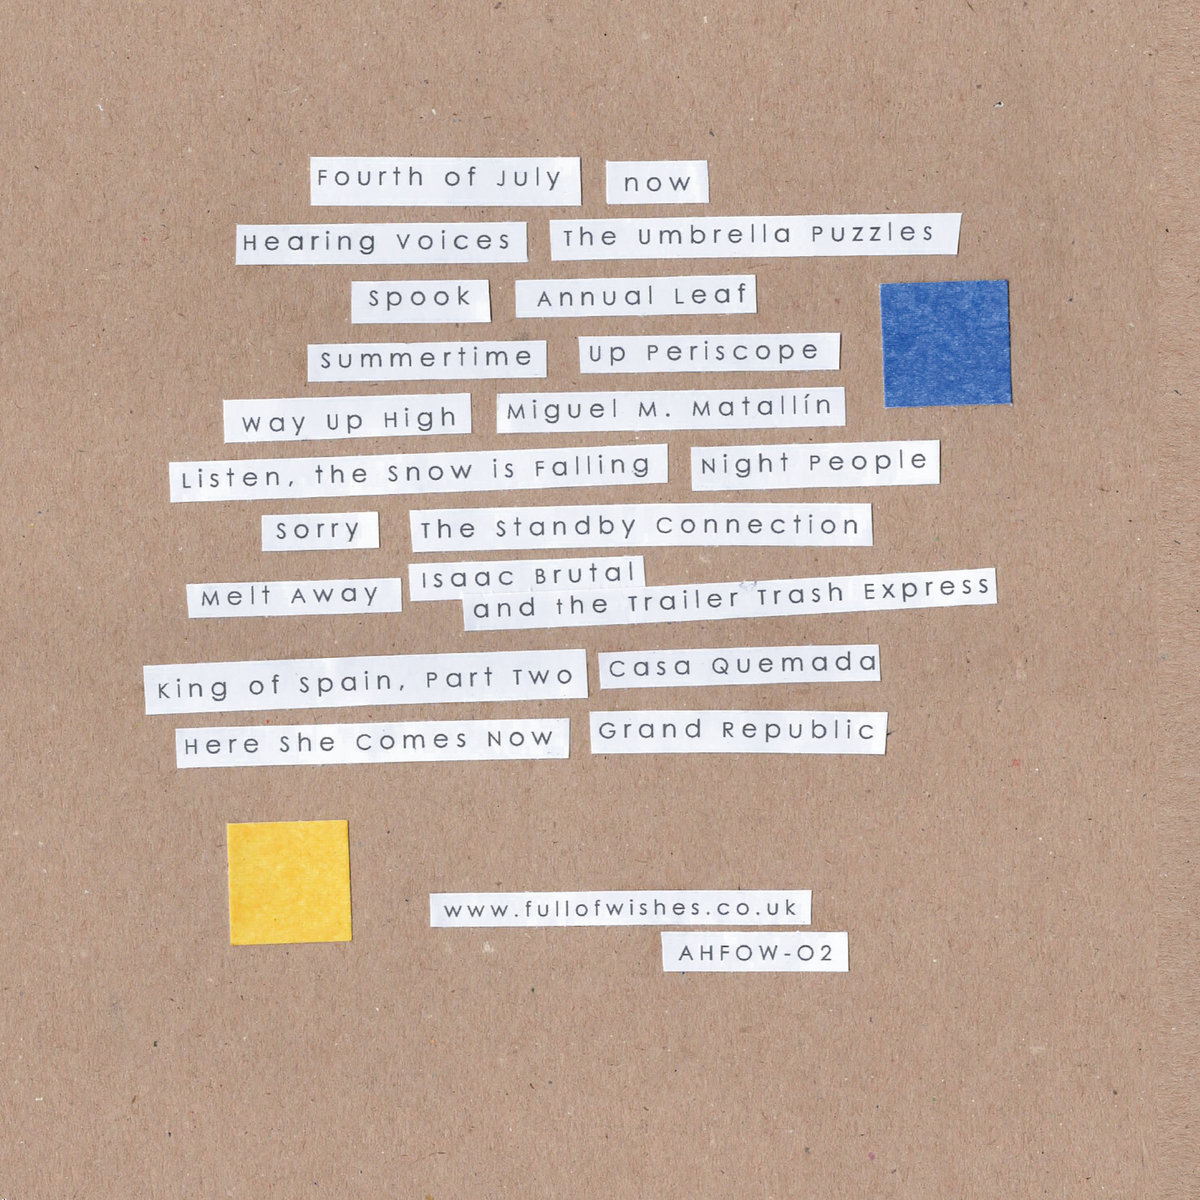 Fourth of July now
Hearing Voices The Umbrella Puzzles
Spook Annual Leaf
Summertime Up Periscope
Way Up High Miguel M. Matallín
Listen, the Snow is Falling Night People
Sorry The Standby Connection
Melt Away Isaac Brutal
and the Trailer Trash Express
King of Spain, Part Two Casa Quemada
Here She Comes Now Grand Republic
www.fullofwishes.co.uk
AHFOW-02